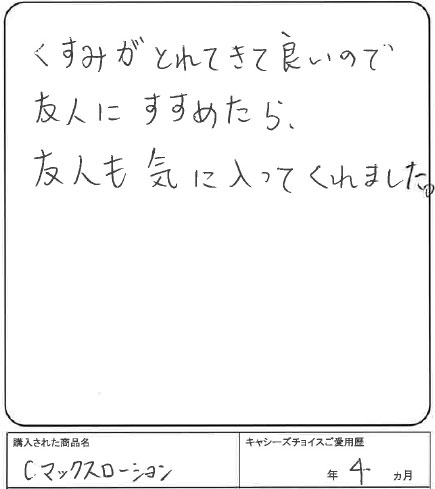 くすみがとれてきて良いので
友人にすすめたら、
友人も気に入ってくれました。
購入された商品名
キャシーズチョイスご愛用歴
Cマックスローション
年 4 ヵ月